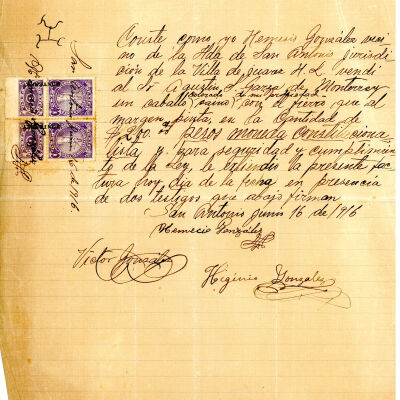 Conste como yo Hemesio González veci
no de la Hda de San Antonio jurisdic
ción de la Villa de Juares N. L. vendí
al Sr Agustín S. Garza de Monterrey
un caballo (colorado) con el fierro que al
margen pinta, en la Cantidad de
$200.00 pesos moneda Constituciona
lista y para seguridad y cumplimien
to de la Ley, le extiendo la presente fac
tura hoy día de la fecha en presencia
de dos testigos que abajo firman
San Antonio Junio 16 de 1916
Hemecio González
Victor González
Higinio Gonzalez
San Antonio Junio 16 de 1916.